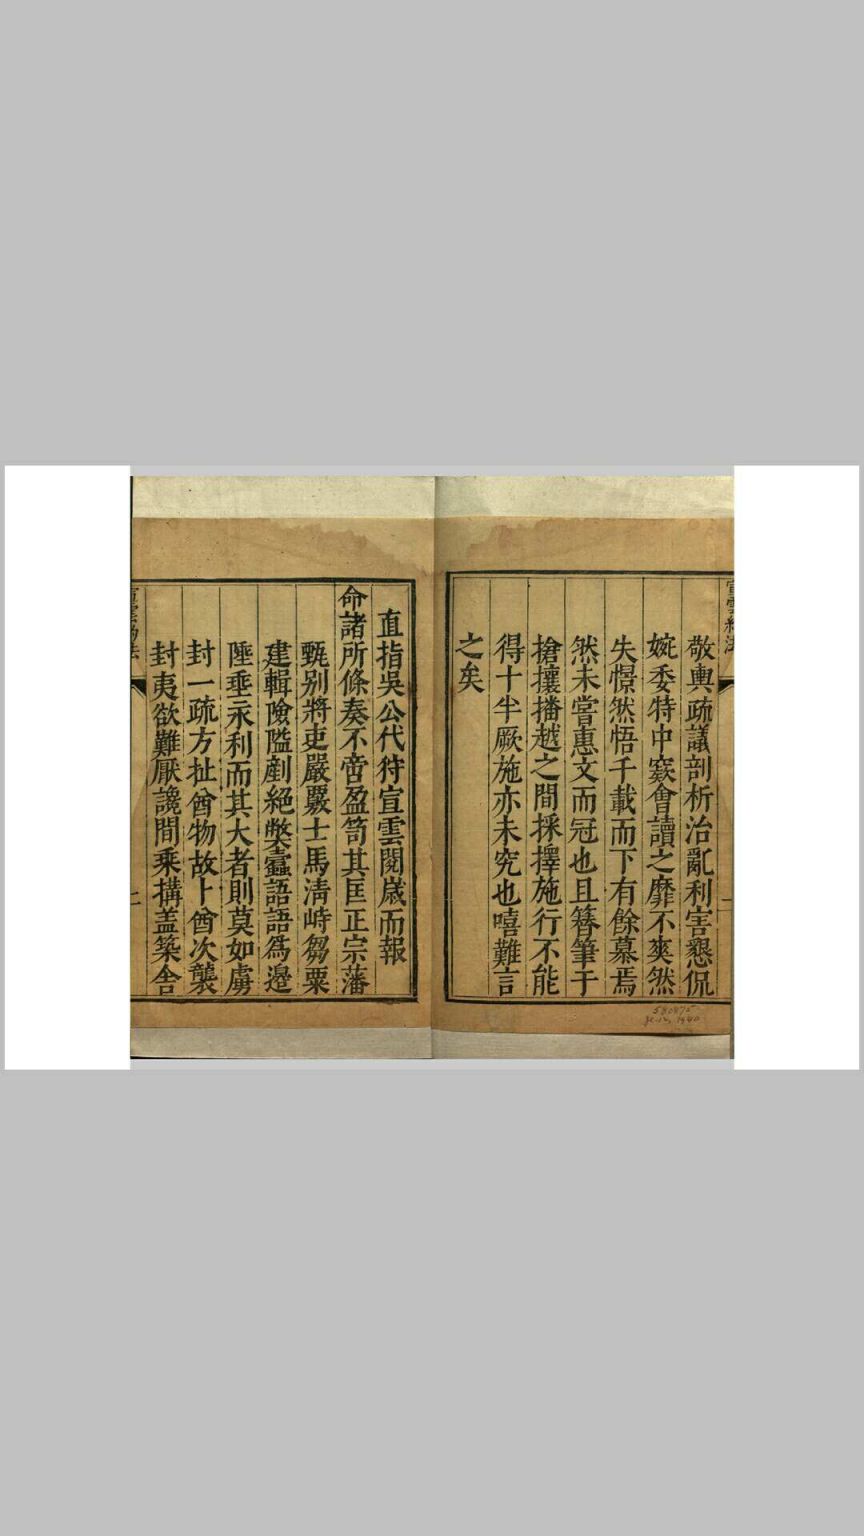 敬輿疏議剖析治亂利害懇侃
婉委特中窾會讀之靡不爽然
失憬然悟千載而下有餘慕焉
然未嘗惠文而冠也且簪筆于
搶攘播越之間採擇施行不能
得十半厥施亦未究也嘻難言
之矣
直指吳公代狩宣雲閱嵗而報
命諸所條奏不啻盈笥其匡正宗藩
甄别將吏嚴覈士馬淸峙芻粟
建輯險隘剷絕獘蠧語語爲邉
陲埀永利而其大者則莫如虜
封一疏方扯酋物故卜酋次襲
封夷欲難厭讒間乘搆盖築舎
二